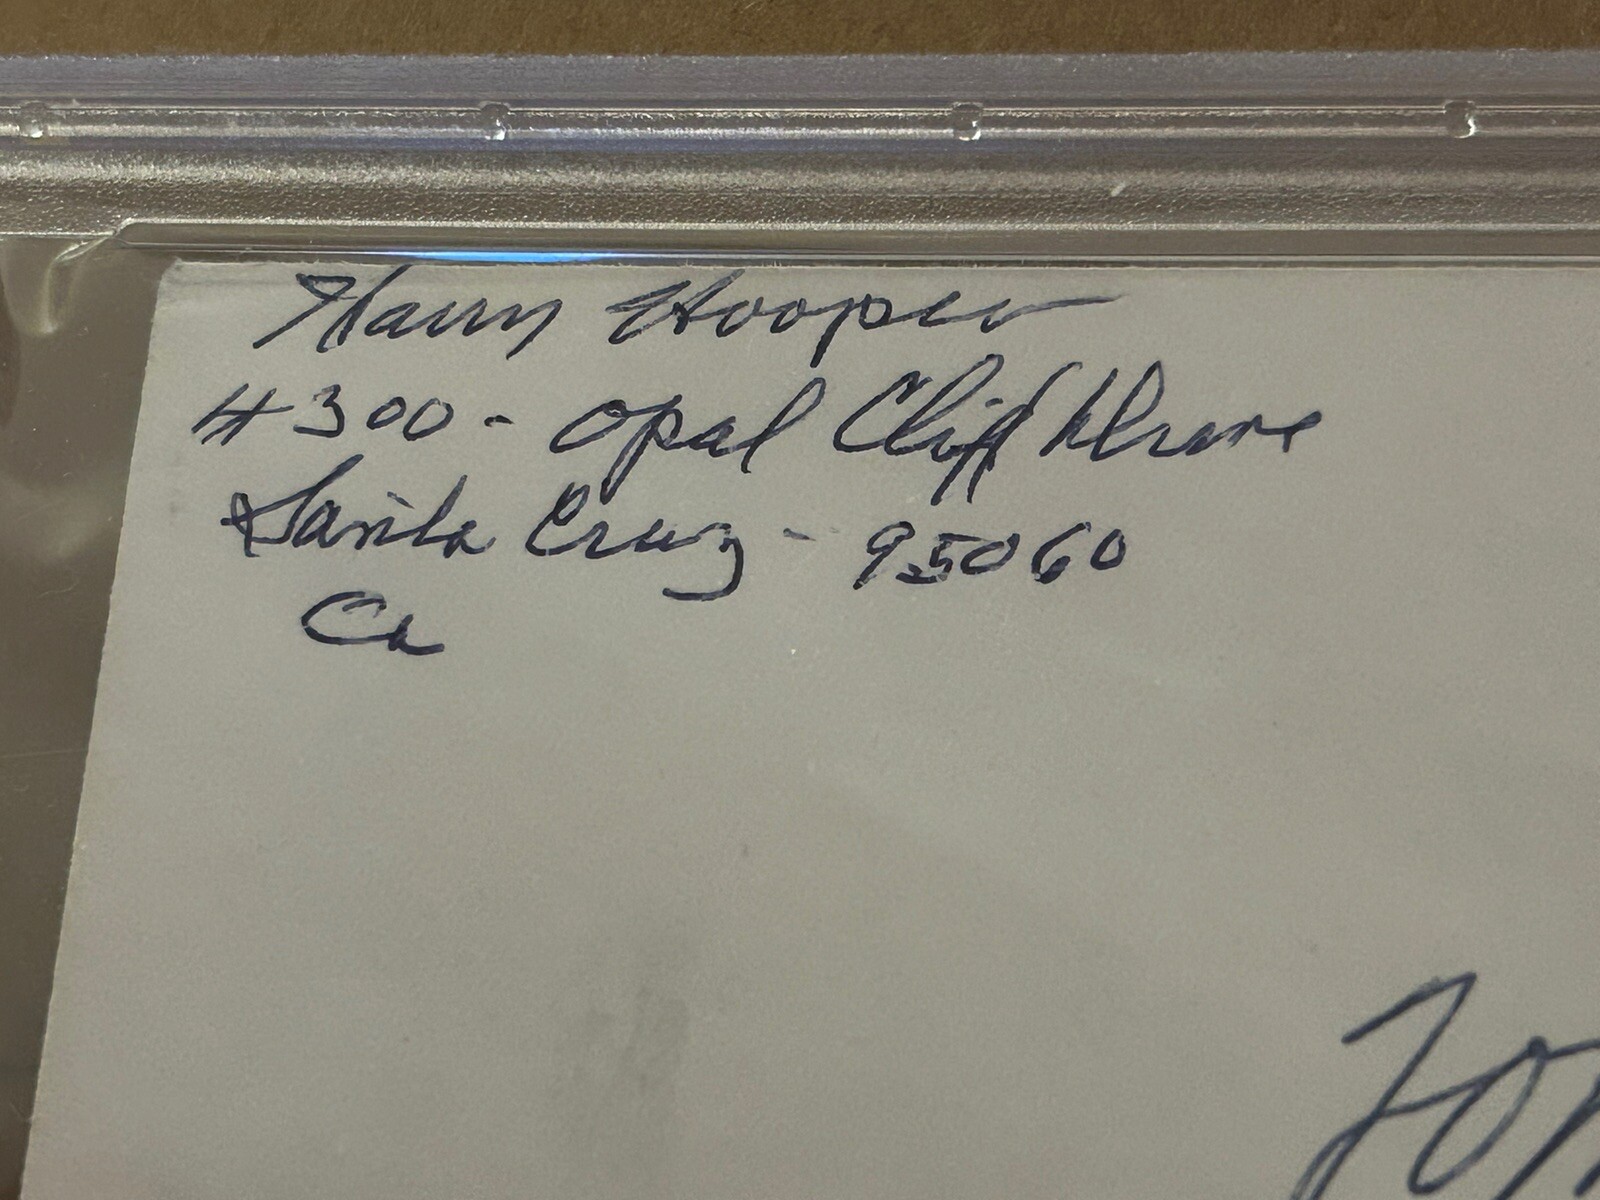 Harry Hooper
#300 - Opal Cliff Drive
Santa Cruz - 95060
Ca